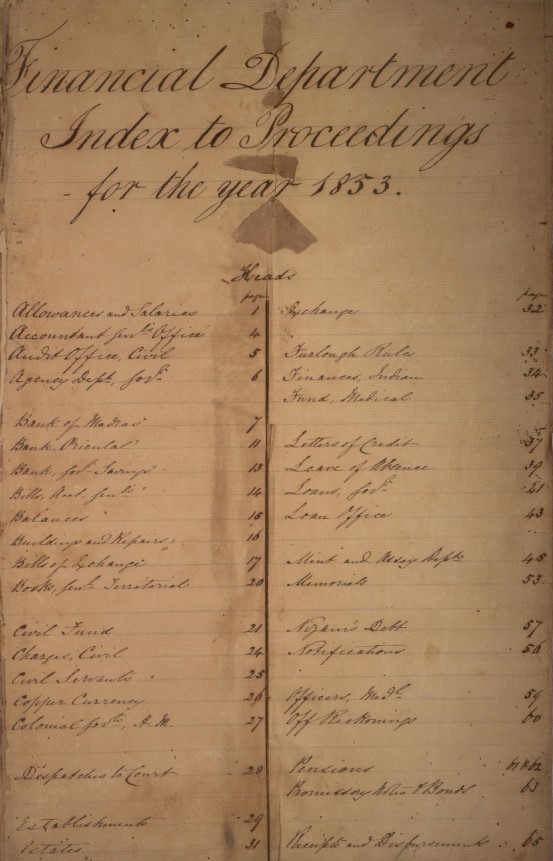 Financial Department
Index to Proceedings
for the year 1853.
Heads
page
Allowances and Salaries 1
Accountant Genl's Office 4
Audit Office, Civil 5
Agency Dept., Govt. 6
Bank of Madras 7
Bank Oriental 11
Bank, Govt. Savings 13
Bills, Acct. Genl's 14
Balances 15
Buildings and Repairs 16
Bills of Exchange 17
Books, Genl. Territorial 20
Civil Fund 21
Charges, Civil 24
Civil Servants 25
Copper Currency 26
Colonial Govts., H.M. 27
Despatches to Court 28
Establishments 29
Estates 31
page
Exchange 32
Furlough Rules 33
Finances, Indian 34
Fund, Medical 35
Letters of Credit 37
Leave of Absence 39
Loans, Govt. 41
Loan Office 43
Mint and Assay Dept. 45
Memorials 53
Nizam's Debt 57
Notifications 56
Officers, Medl. 59
Off Reckonings 60
Pensions 61 & 62
Promissory Notes & Bonds 63
Receipts and Disbursements 65